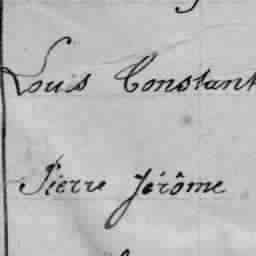 Louis Constant
Pierre Jérôme